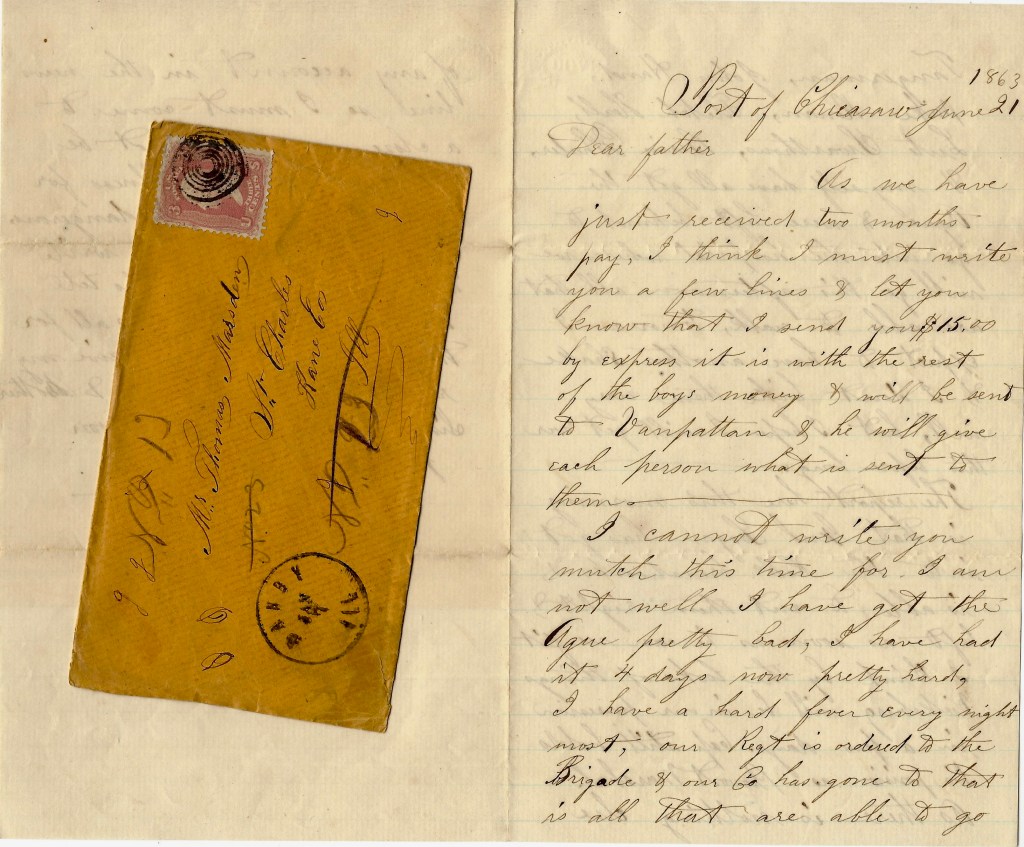 Mr. Thomas Marsden
St. Charles
Kane Co
Ill
DANBY
JAN
ILL
3
CENTS
1863
Port of Chicasaw June 21
Dear father
As we have
just received two months
pay, I think I must write
you a few lines & let you
know that I send you $15.00
by express it is with the rest
of the boys money & will be sent
to Vanpattan & he will give
each person what is sent to
them.
I cannot write you
mutch this time for I am
not well I have got the
Ague pretty bad, I have had
it 4 days now pretty hard,
I have a hard fever every night
most, our Regt is ordered to the
Brigade & our Co has gone to that
is all that are able to go